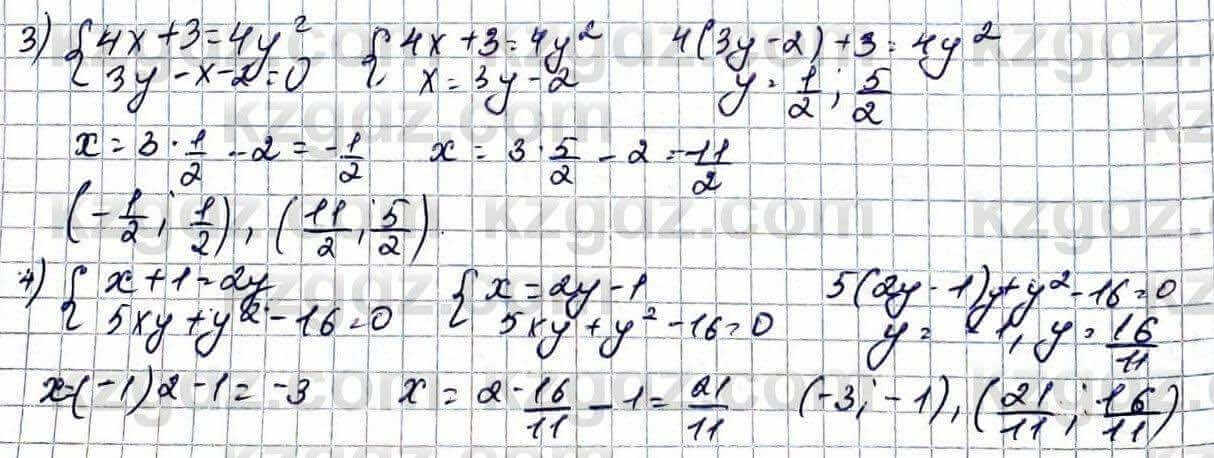 3) {4x+3=4y² {4x+3=4y² 4(3y-2)+3=4y²
{3y-x-2=0 {x=3y-2 y=1/2; 5/2
x=3·1/2-2=-1/2 x=3·5/2-2=-11/2
(-1/2; 1/2), (11/2; 5/2).
4) {x+1=2y {x=2y-1 5(2y-1)y+y²-16=0
{5xy+y²-16=0 {5xy+y²-16=0 y=-1, y=16/11
x=(-1)2-1=-3 x=2·16/11-1=21/11 (-3;-1), (21/11; 16/11)
kzgdz.com